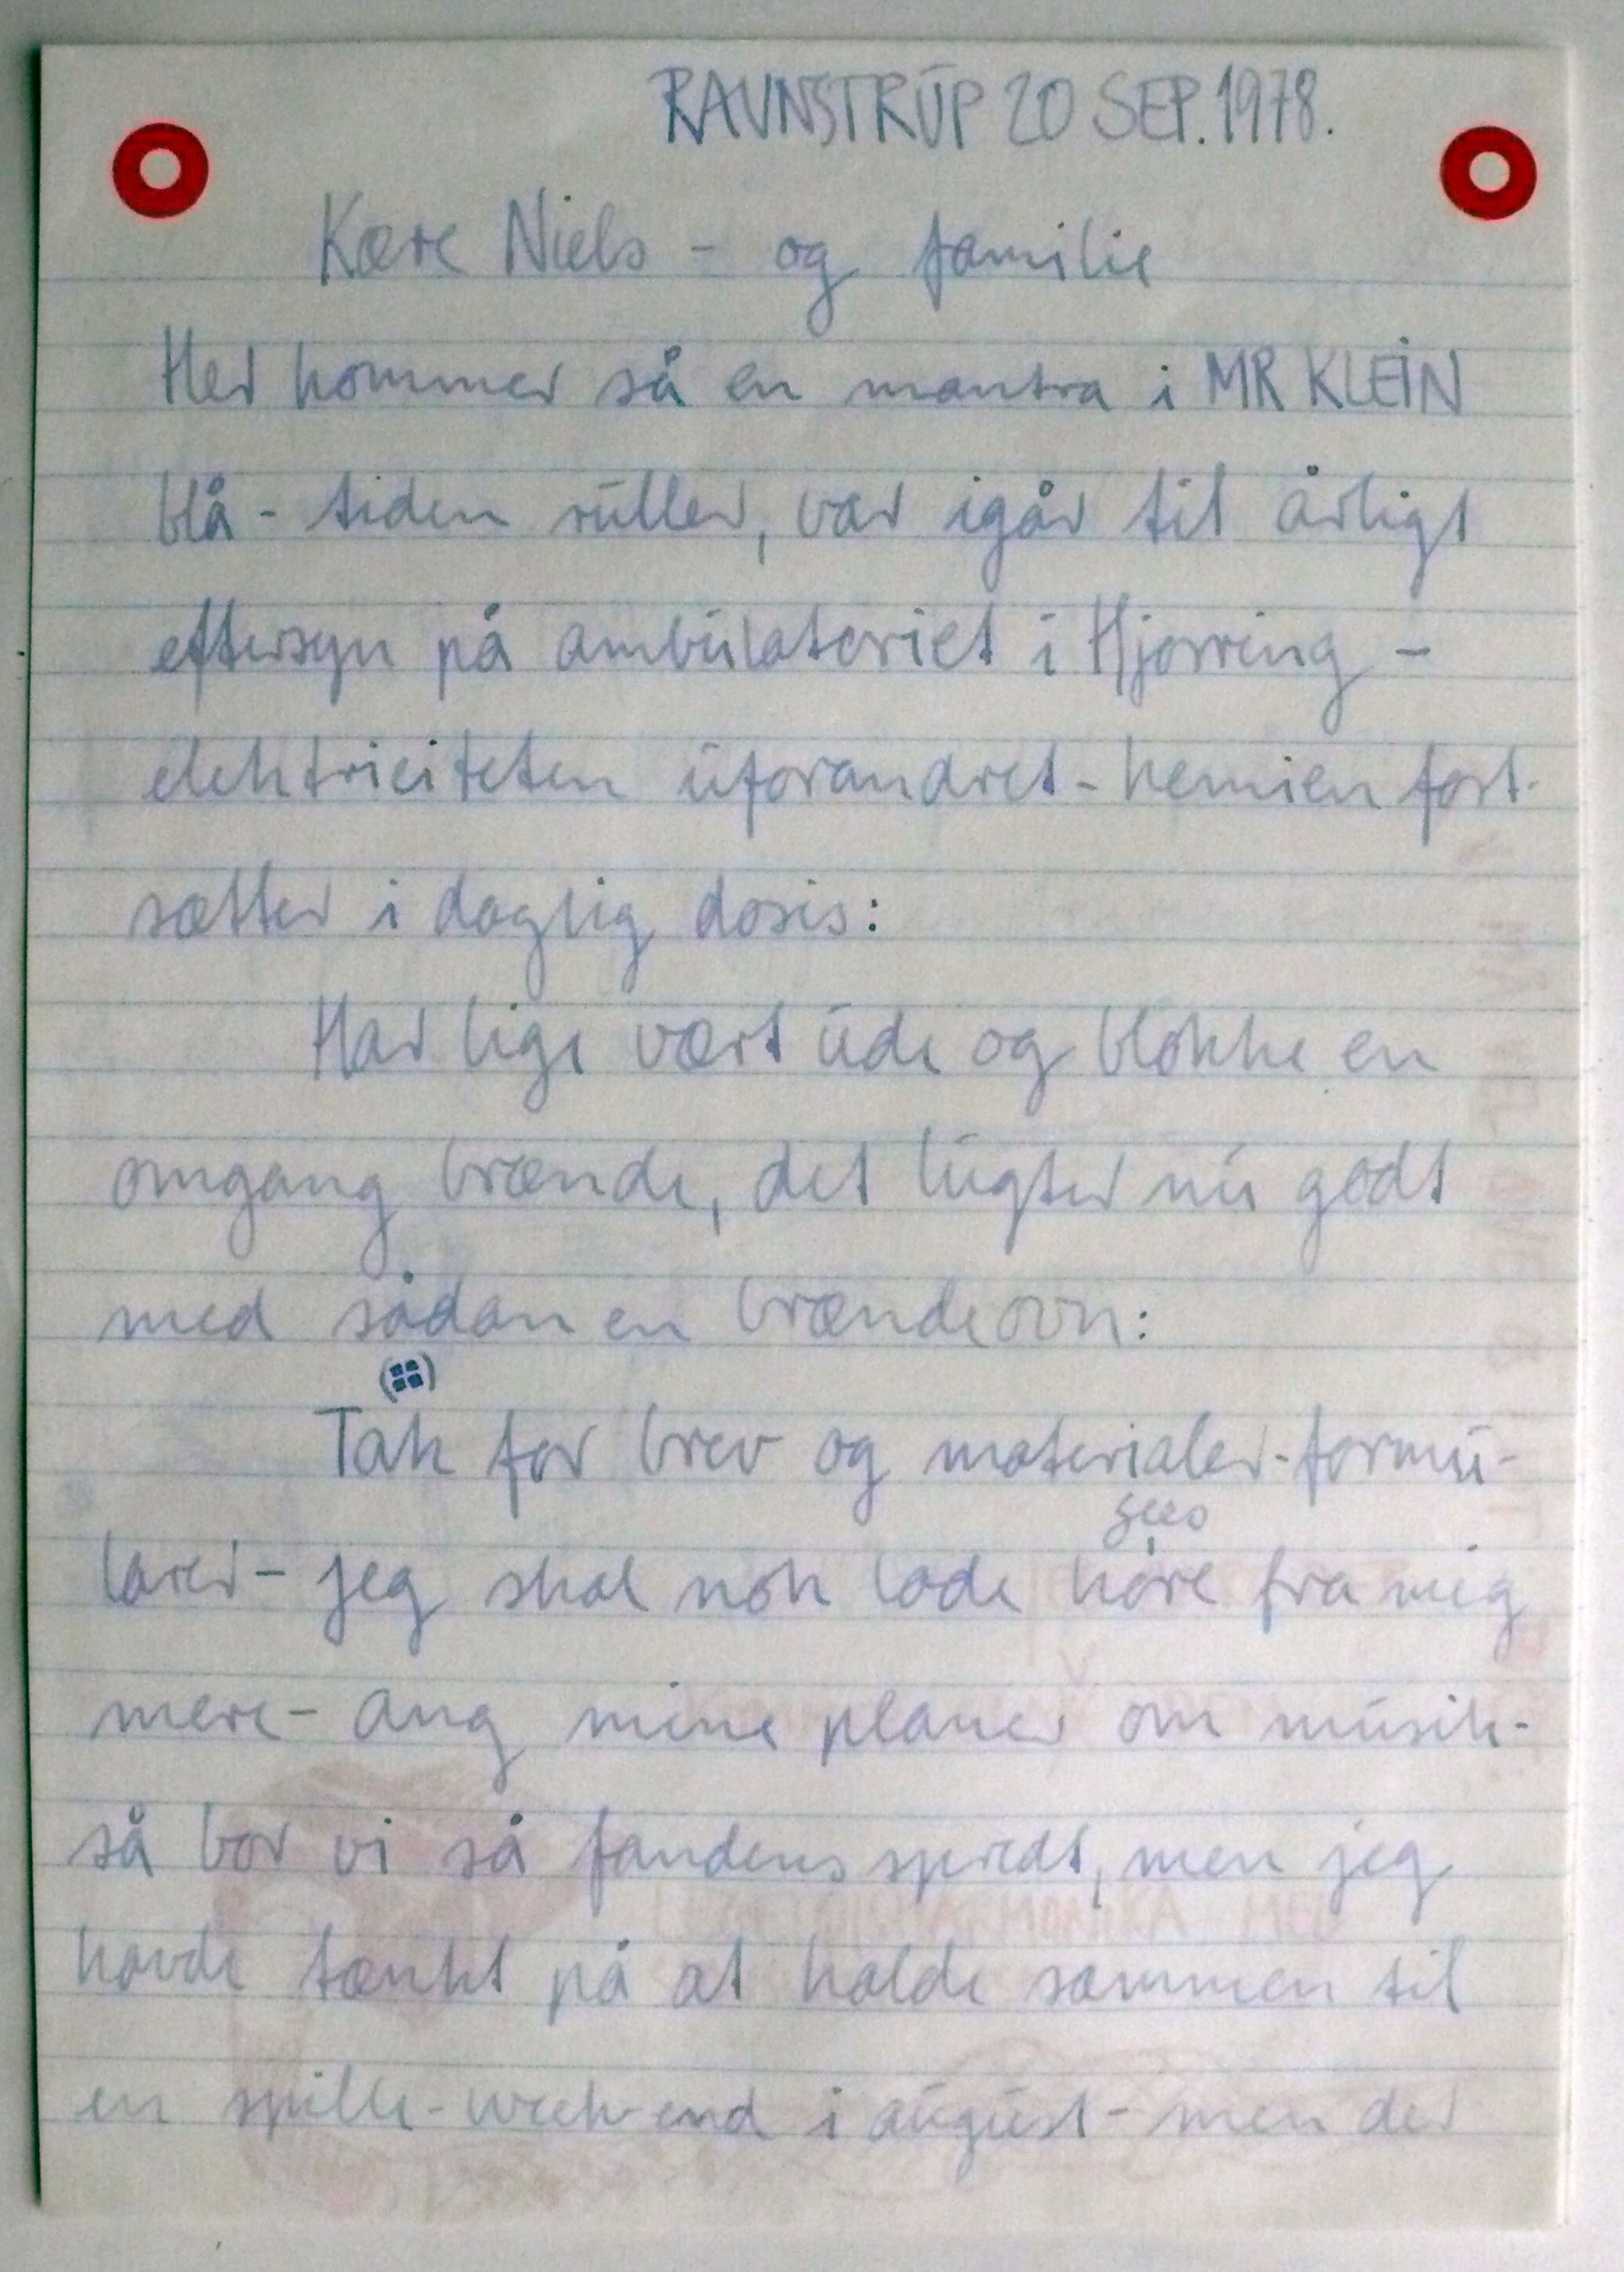 RAVNSTRUP 20 SEP. 1978.
Kære Niels - og familie
Her kommer så en mantra i MR KLEIN
blå - tiden ruller, var igår til årligt
eftersyn på ambulatoriet i Hjørring -
elektriciteten uforandret - kemien fort-
sætter i daglig dosis:
Har lige vært ude og blokke en
omgang brænde, det lugter nu godt
med sådan en brændeovn:
Tak for brev og materialer - formu-
larer - jeg skal nok lade høre fra mig
mere - ang mine planer om musik -
så bor vi så fandens spredt, men jeg
havde tænkt på at kalde sammen til
en spille-week-end i august - men der